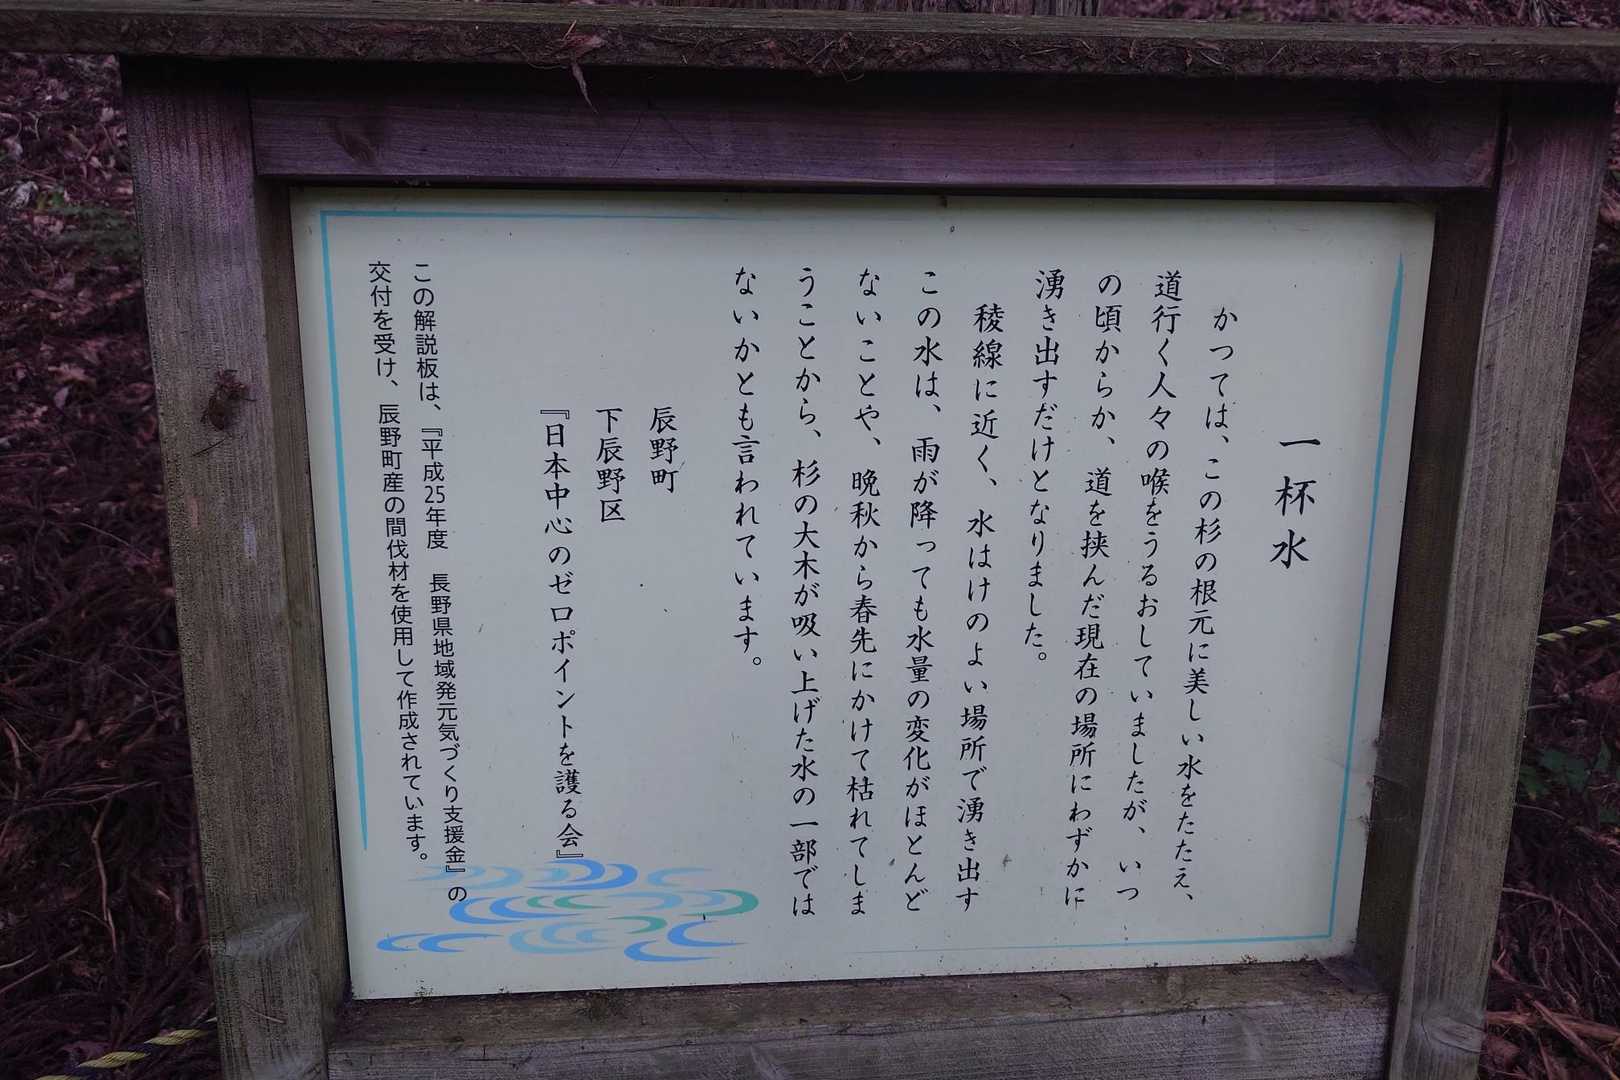 一杯水
かつては、この杉の根元に美しい水をたたえ、
道行く人々の喉をうるおしていましたが、いつ
の頃からか、道を挟んだ現在の場所にわずかに
湧き出すだけとなりました。
稜線に近く、水はけのよい場所で湧き出す
この水は、雨が降っても水量の変化がほとんど
ないことや、晩秋から春先にかけて枯れてしま
うことから、杉の大木が吸い上げた水の一部では
ないかとも言われています。
辰野町
下辰野区
『日本中心のゼロポイントを護る会』
この解説板は、『平成25年度 長野県地域発元気づくり支援金』の
交付を受け、辰野町産の間伐材を使用して作成されています。